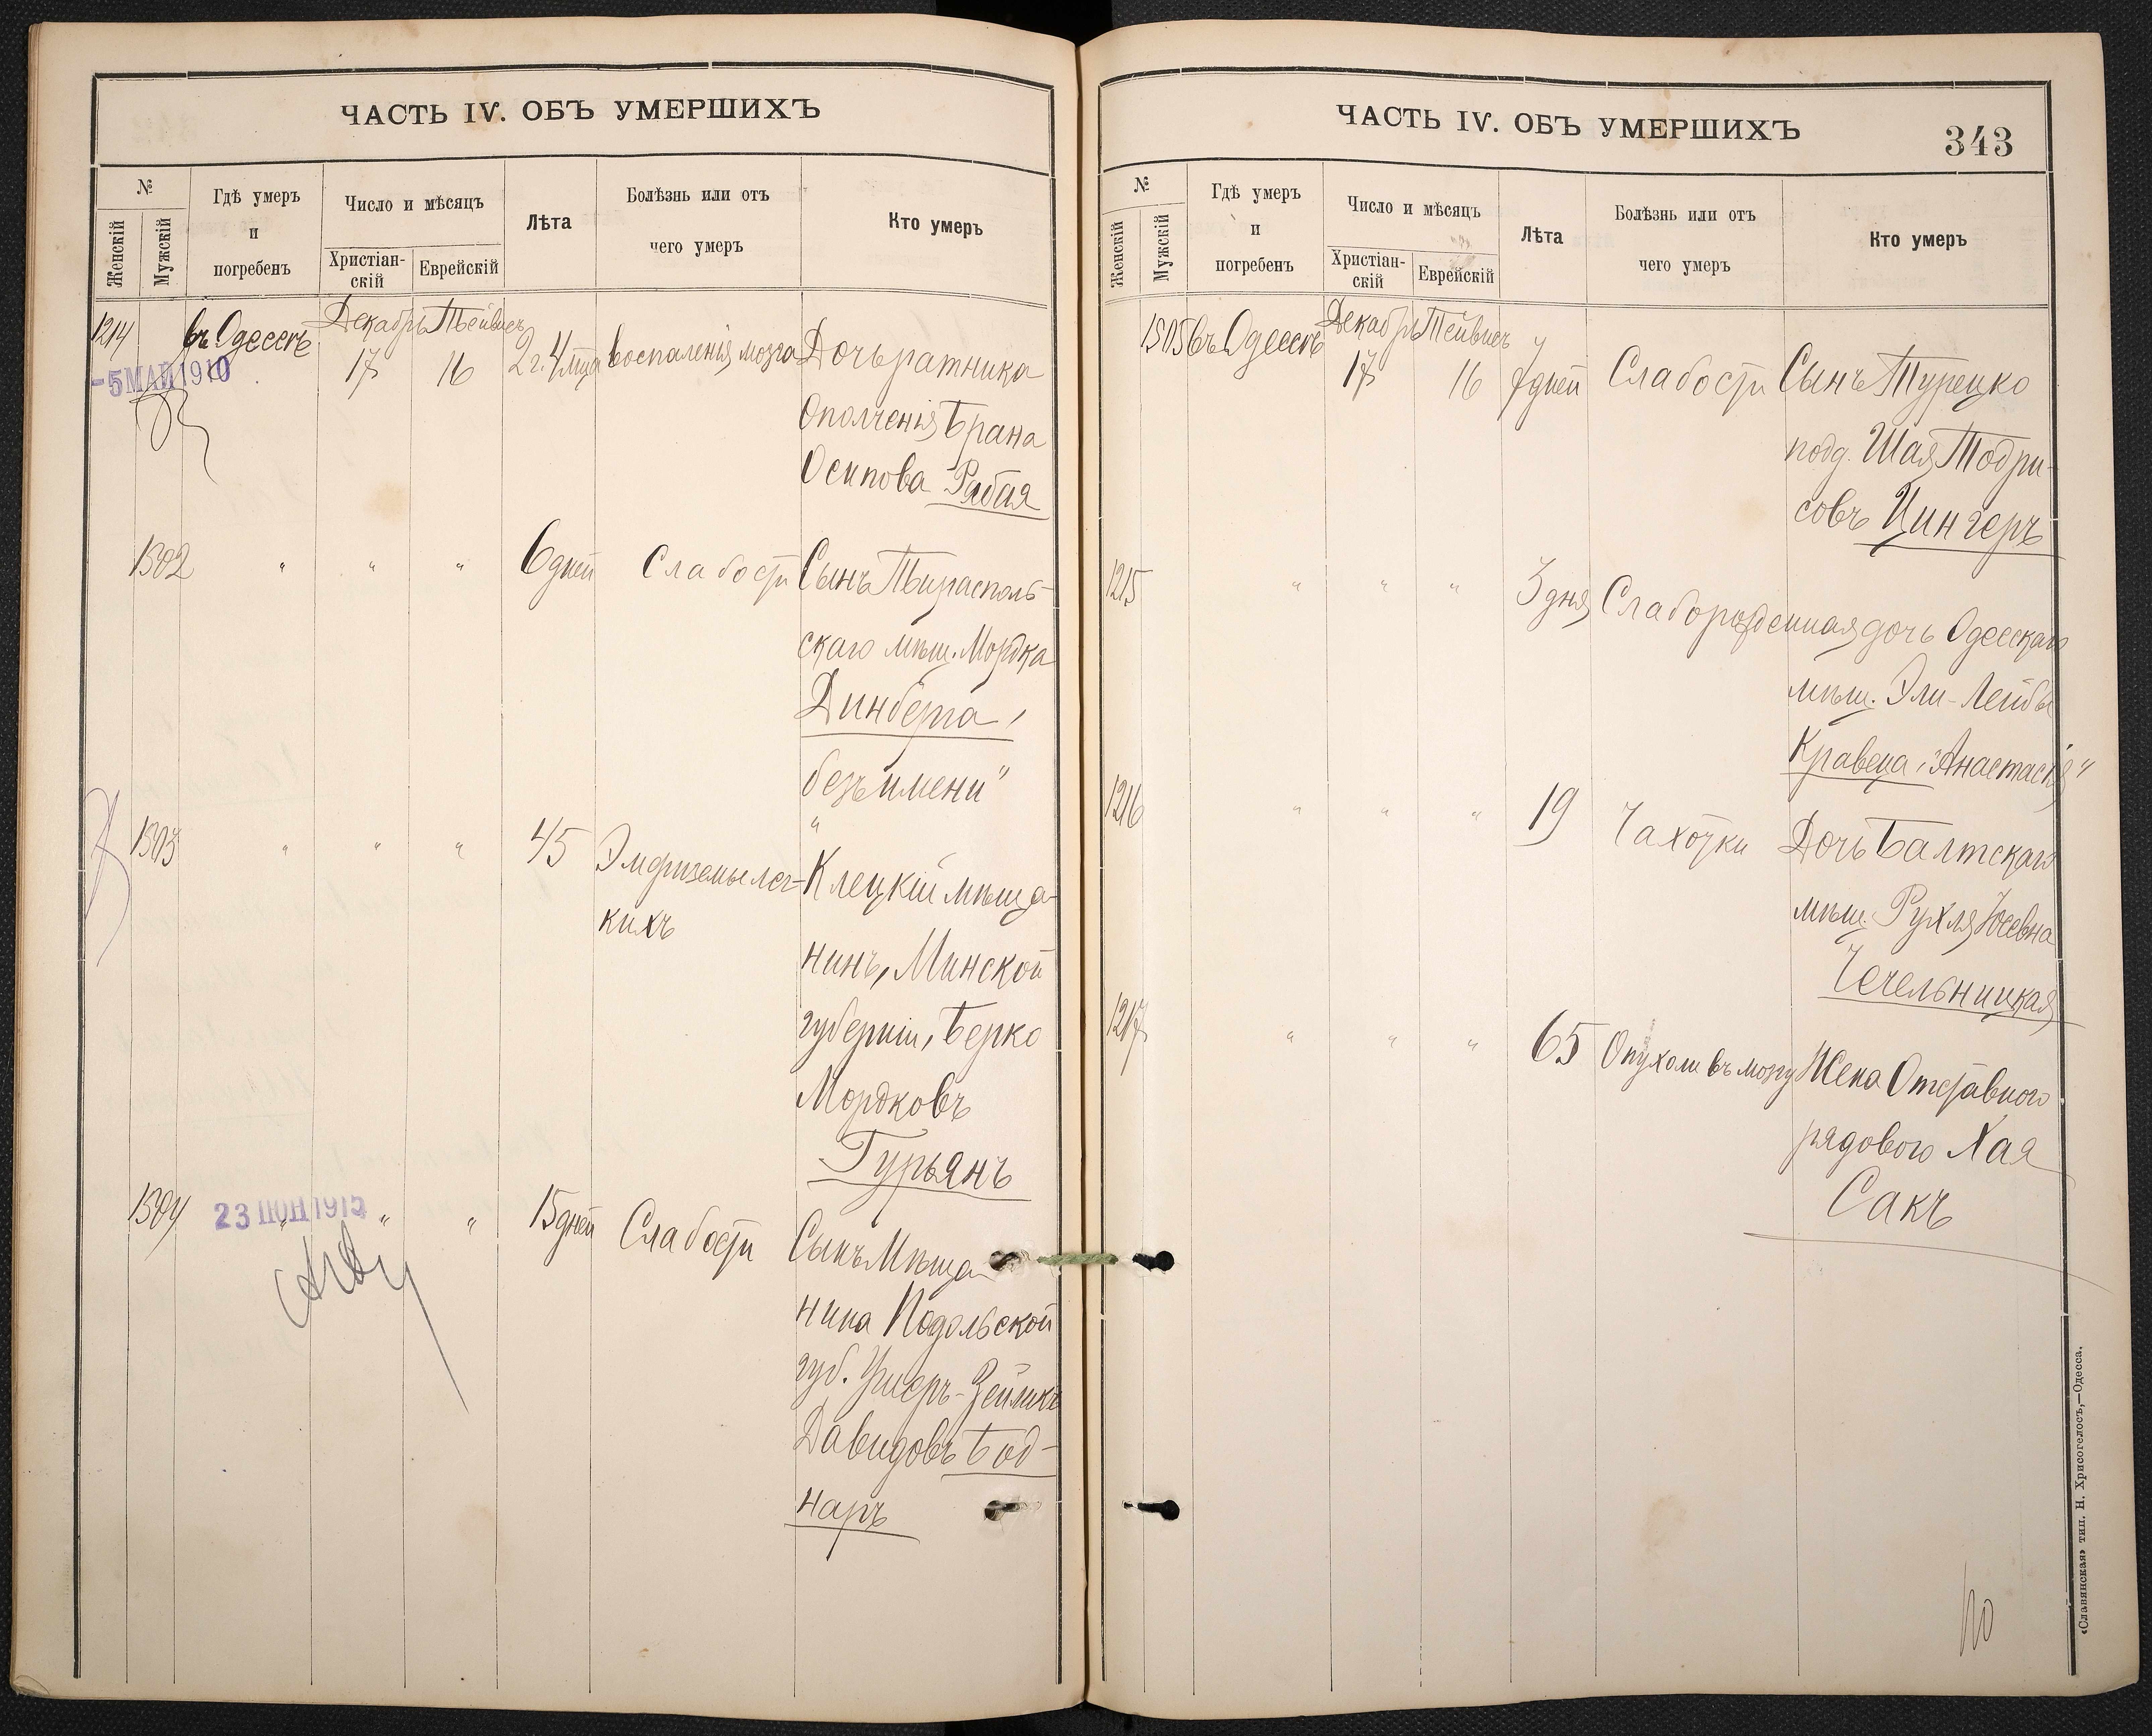 ЧАСТЬ IV. ОБЪ УМЕРШИХЪ
№
Женскій
Мужскій
Гдѣ умеръ
и
погребенъ
Число и мѣсяцъ
Христіан-
скій
Еврейскій
Лѣта
Болѣзнь или отъ
чего умеръ
Кто умеръ
1214
въ Одессѣ
Декабрь Тейвисъ
17 16
2 г. 4 мца
Воспаленія мозга
Дочь ратника
Ополченія Брана
Осипова Рабая
-5 МАЙ 1910
1502
" " "
6 дней
Слабости
Сынъ Тирасполь-
скаго мѣщ. Мордка
Динберга,
безъ имени"
1503
" " "
45
Эмфиземы лег-
кихъ
"
Клецкій мѣща-
нинъ, Минской
губерніи, Берко
Мордковъ
Гурьянъ
1504
23 ІЮН 1915
" " "
15 дней
Слабости
Сынъ Мѣща-
нина Подольской
губ. Ушеръ-Зейликъ
Давидовъ Бод-
наръ
ЧАСТЬ IV. ОБЪ УМЕРШИХЪ
343
№
Женскій
Мужскій
Гдѣ умеръ
и
погребенъ
Число и мѣсяцъ
Христіан-
скій
Еврейскій
Лѣта
Болѣзнь или отъ
чего умеръ
Кто умеръ
1505
въ Одессѣ
Декабрь Тейвисъ
17 16
7 дней
Слабости
Сынъ Турецко
подд. Шая Тодри-
совъ Цингеръ
1215
" " "
3 дня
Слаборожденная дочь Одесскаго
мѣщ. Эли-Лейбы
Кравеца, "Анастасія"
1216
" " "
19
Чахотки
Дочь Балтскаго
мѣщ. Рухля Юсевна
Чечельницкая
1217
" " "
65
Опухоли въ мозгу
Жена Отставного
рядового Хая
Сакъ
«Славянская» тип. Н. Хрисогелосъ,—Одесса.